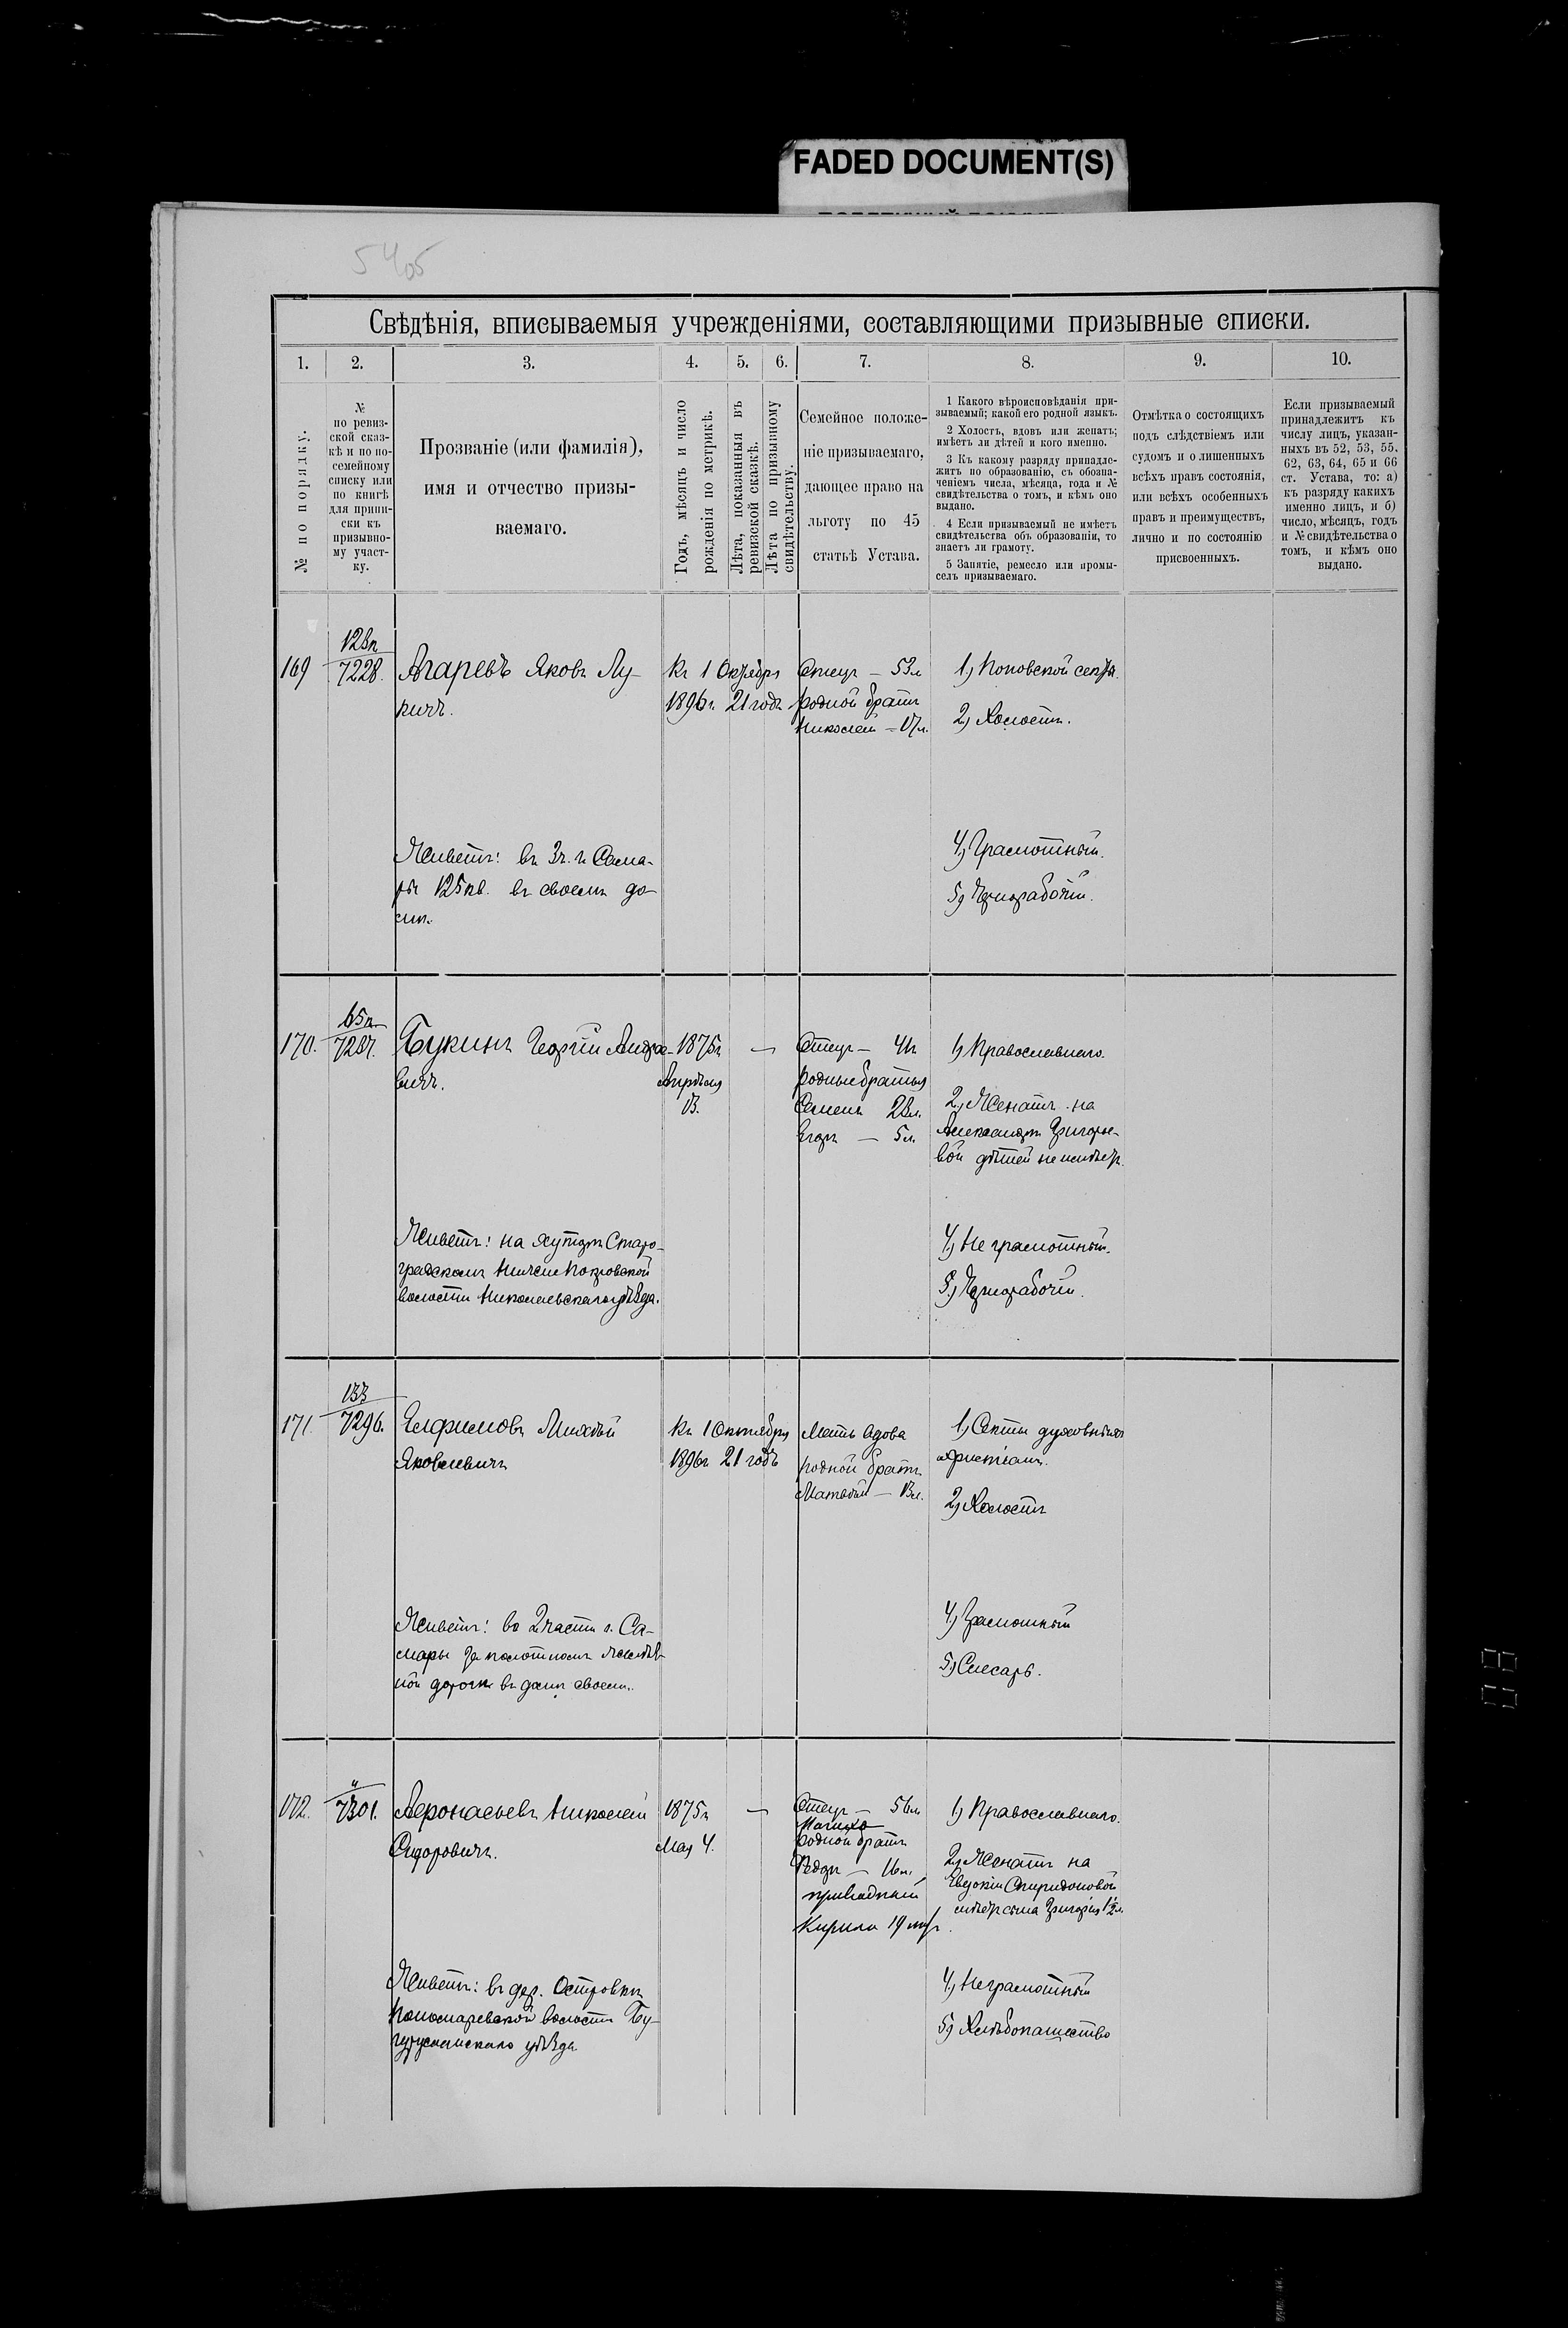 FADED DOCUMENT(S)
5405
Свѣдѣнія, вписываемыя учрежденіями, составляющими призывные списки.
1. 2. 3. 4. 5. 6. 7. 8. 9. 10.
№ по порядку.
№
по ревиз-
ской сказ-
кѣ и по по-
семейному
списку или
по книгѣ
для припи-
ски къ
призывно-
му участ-
ку.
Прозваніе (или фамилія),
имя и отчество призы-
ваемаго.
Годъ, мѣсяцъ и число
рожденія по метрикѣ.
Лѣта, показанныя въ
ревизской сказкѣ.
Лѣта по призывному
свидѣтельству.
Семейное положе-
ніе призываемаго,
дающее право на
льготу по 45
статьѣ Устава.
1 Какого вѣроисповѣданія при-
зываемый; какой его родной языкъ.
2 Холостъ, вдовъ или женатъ;
имѣетъ ли дѣтей и кого именно.
3 Къ какому разряду принадле-
житъ по образованію, съ обозна-
ченіемъ числа, мѣсяца, года и №
свидѣтельства о томъ, и кѣмъ оно
выдано.
4 Если призываемый не имѣетъ
свидѣтельства объ образованіи, то
знаетъ ли грамоту.
5 Занятіе, ремесло или промы-
селъ призываемаго.
Отмѣтка о состоящихъ
подъ слѣдствіемъ или
судомъ и о лишенныхъ
всѣхъ правъ состоянія,
или всѣхъ особенныхъ
правъ и преимуществъ,
лично и по состоянію
присвоенныхъ.
Если призываемый
принадлежитъ къ
числу лицъ, указан-
ныхъ въ 52, 53, 55.
62, 63, 64, 65 и 66
ст. Устава, то: а)
къ разряду какихъ
именно лицъ, и б)
число, мѣсяцъ, годъ
и № свидѣтельства о
томъ, и кѣмъ оно
выдано.
169
128п
7228.
Агаревъ Яковъ Лу-
кичъ.
Къ 1 Октября
1896г 21 годъ
Отецъ — 53л
родной братъ
Николай — 17л.
1) Поповской секты.
2) Холостъ.
Живетъ: въ 3ч. г. Сама-
ры 125кв. въ своемъ до-
мѣ.
4) Грамотный.
5) Чернорабочій.
170.
65п
7287.
Букинъ Георгій Андрее-
вичъ.
1875г
Апрѣля
13.
—
Отецъ — 41л
родные братья
Семенъ 28л.
Егоръ — 5л.
1) Православнаго.
2) Женатъ на
Александрѣ Григорье-
вой дѣтей не имѣетъ.
Живетъ: на хуторѣ Старо-
градскомъ Покровской
волости Николаевскаго уѣзда.
4) Не грамотный.
5) Чернорабочій.
171.
133
7296.
Елфимовъ Михѣй
Яковлевичъ
Къ 1 Октября
1896г 21 годъ
Мать вдова
родной братъ
Матвѣй — 13л.
1) Секты духовныхъ
христіанъ.
2) Холостъ
Живетъ: во 2 части г. Са-
мары за полотномъ желѣз-
ной дороги въ домѣ своемъ.
4) Грамотный
5) Слесарь.
172.
"
7301.
Афонасьевъ Николай
Сидоровичъ.
1875г
Мая 4.
—
Отецъ — 56л
Мачиха
родной братъ
Ѳедоръ — 16л.
Кирила 19 лѣтъ.
1) Православнаго.
2) Женатъ на
Евдокіи Спиридоновой
имѣетъ сына Григорія 1½л.
Живетъ: въ дер. Островкѣ
Пономаревской волости Бу-
гурусланскаго уѣзда
4) Неграмотный
5) Хлѣбопашество